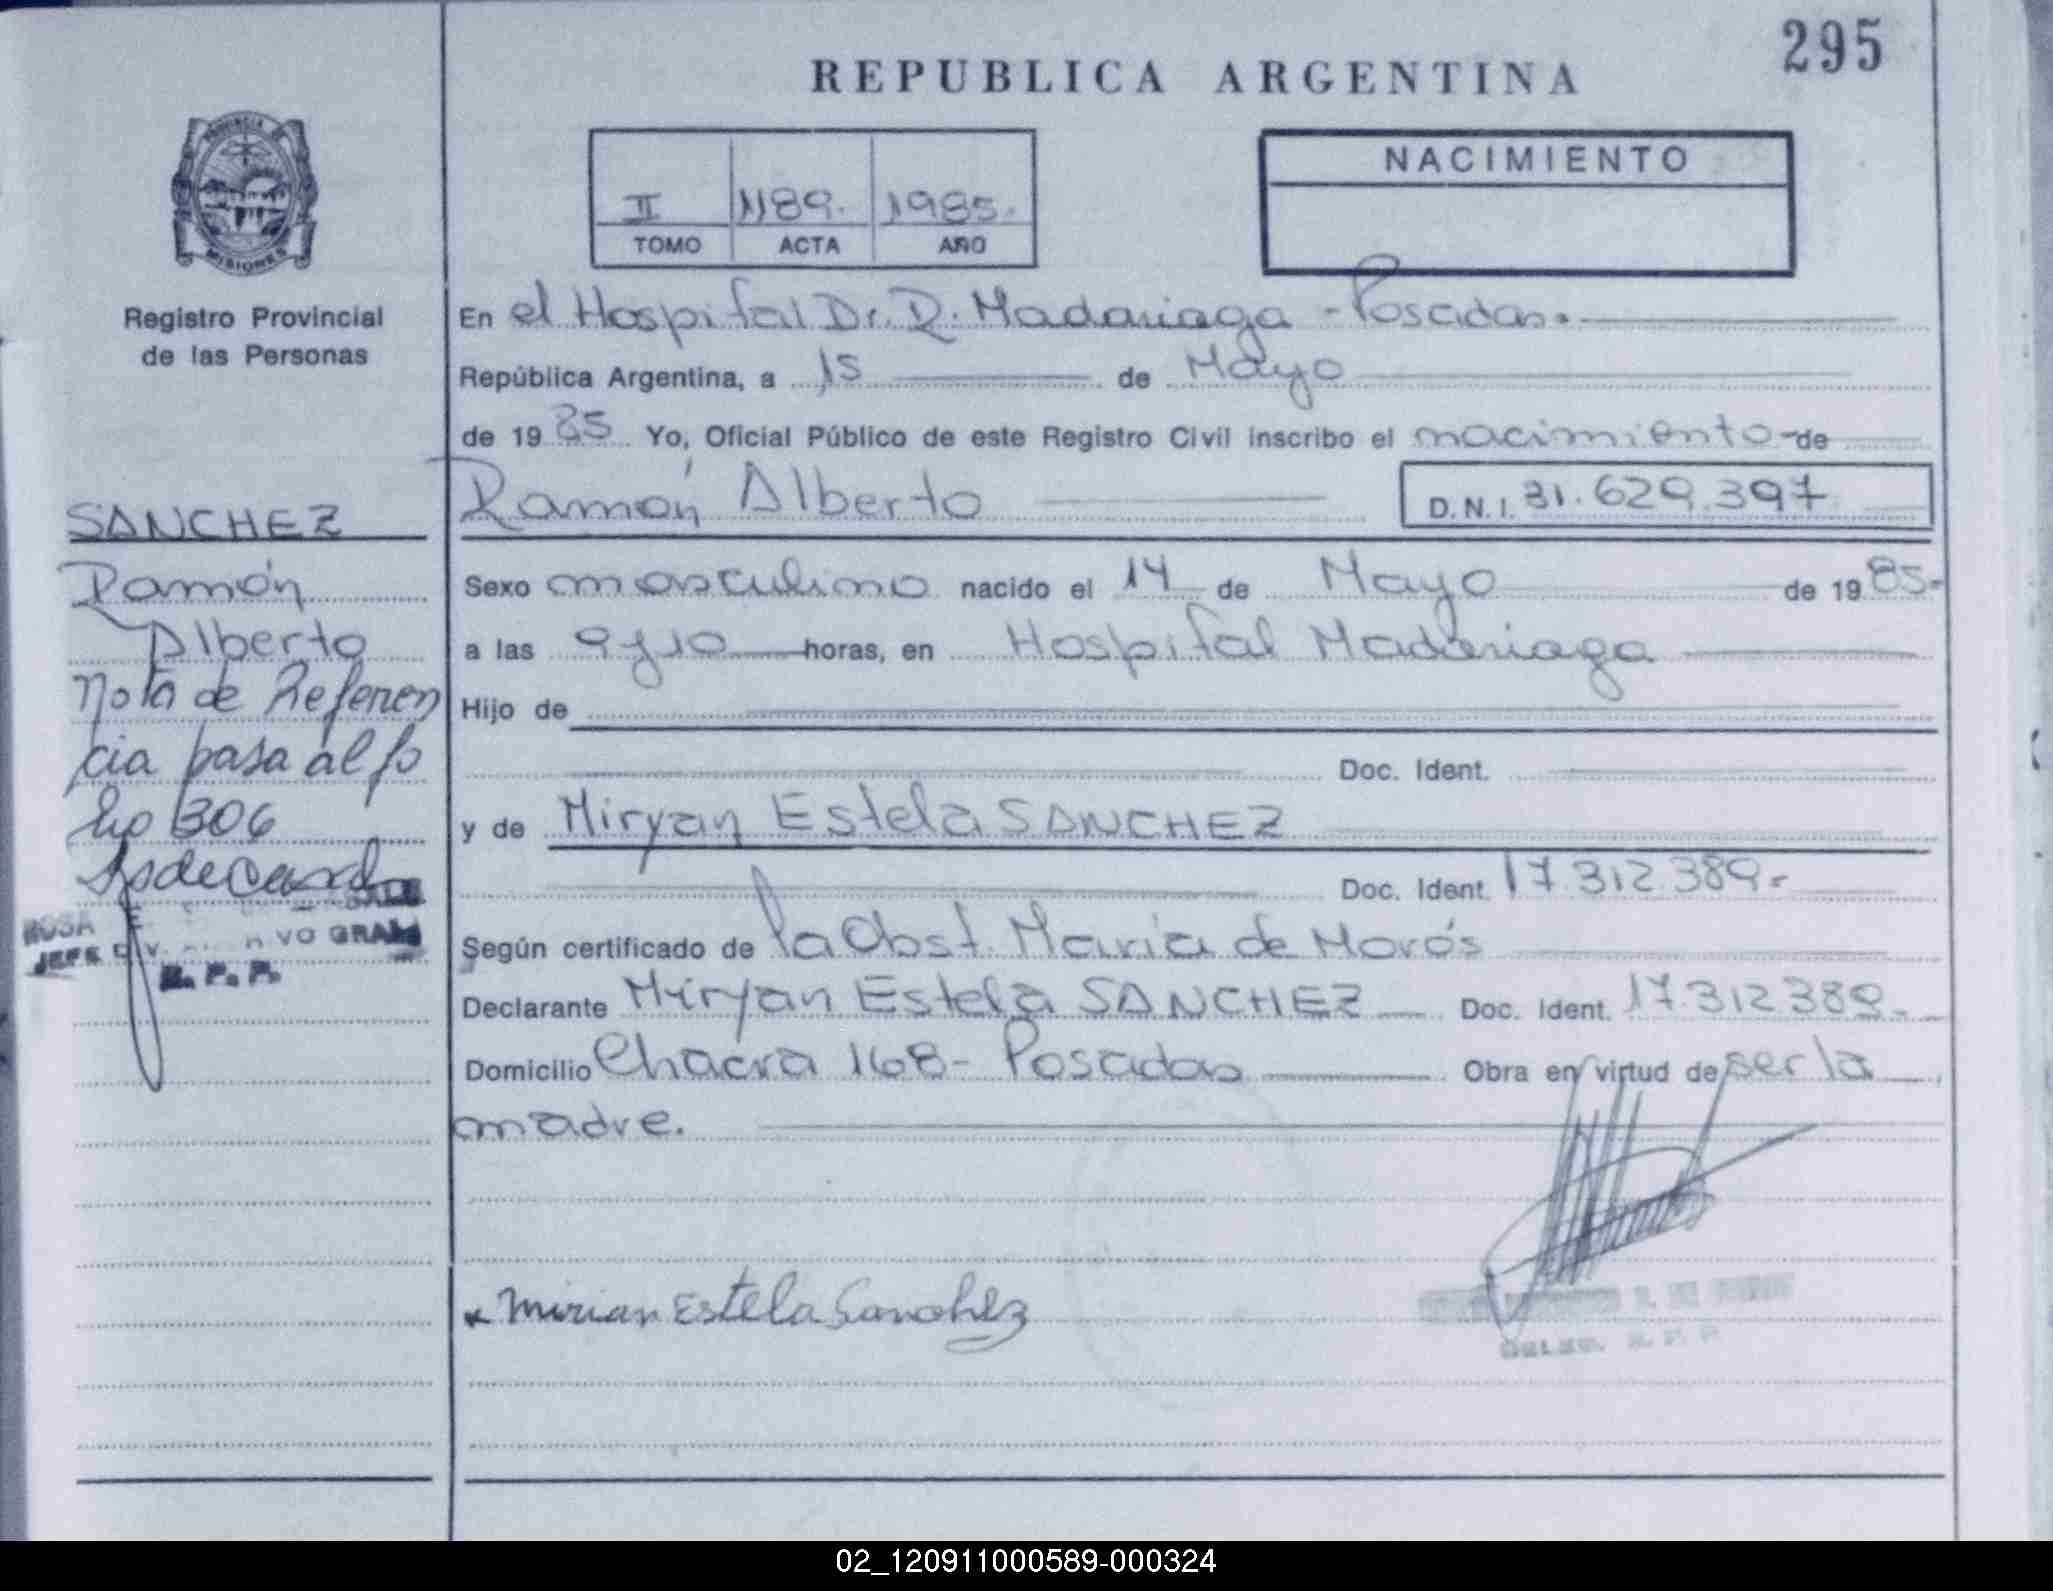 295
REPUBLICA ARGENTINA
PROVINCIA DE
MISIONES
Registro Provincial
de las Personas
II 1189. 1985.
TOMO ACTA AÑO
NACIMIENTO
En el Hospital Dr. R. Madariaga - Posadas.
República Argentina, a 15 de Mayo
de 1985 Yo, Oficial Público de este Registro Civil inscribo el nacimiento de
Ramón Alberto D.N.I. 31.629.397
Sexo masculino nacido el 14 de Mayo de 1985.
a las 9 y 10 horas, en Hospital Madariaga
Hijo de
Doc. Ident.
y de Miryan Estela SANCHEZ
Doc. Ident. 17.312.389.
Según certificado de la Obst. Maria de Morós
Declarante Miryan Estela SANCHEZ Doc. Ident. 17.312.389.
Domicilio Chacra 168 - Posadas Obra en virtud de ser la
madre.
Mirian Estela Sanchez
DELEG. R. P. P.
SANCHEZ
Ramón
Alberto
Nota de Referen
cia pasa al fo
lio 306
ROSA
JEFE DIV. VO GRAL
R. P. P.
02_120911000589-000324